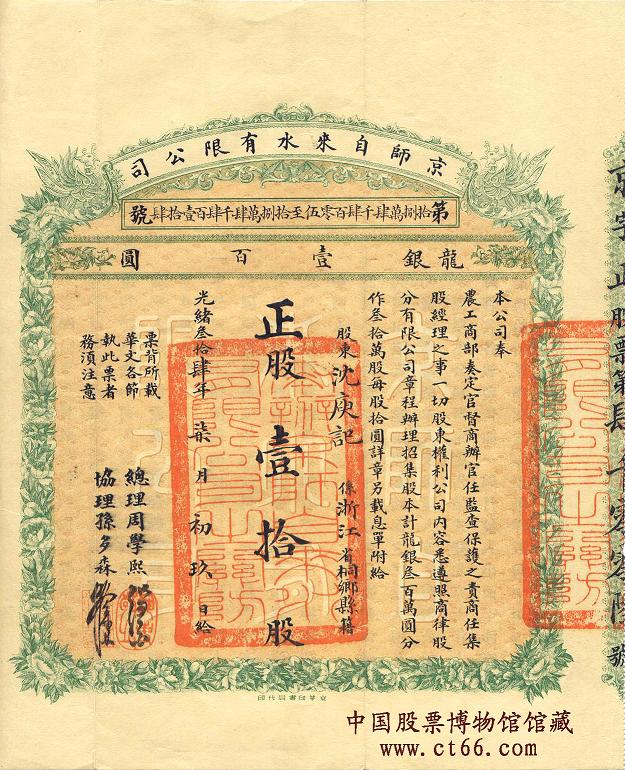 京字正股票第肆千零零陸號
京師自來水有限公司
第拾捌萬肆千肆百零伍至拾捌萬肆千肆百壹拾肆號
龍銀壹百圓
本公司奉
農工商部奏定官督商辦官任監查保護之責商任集
股經理之事一切股東權利公司內容悉遵照商律股
分有限公司章程辦理招集股本計龍銀叁百萬圓分
作叁拾萬股每股拾圓詳章另載息單附給
股東沈庚記 係浙江省桐鄉縣籍
正股壹拾股
光緒叁拾肆年柒月初玖日給
票背所載
華文各節
執此票者
務須注意
總理周學熙
協理孫多森
京華印書局代印
中国股票博物馆馆藏
www.ct66.com